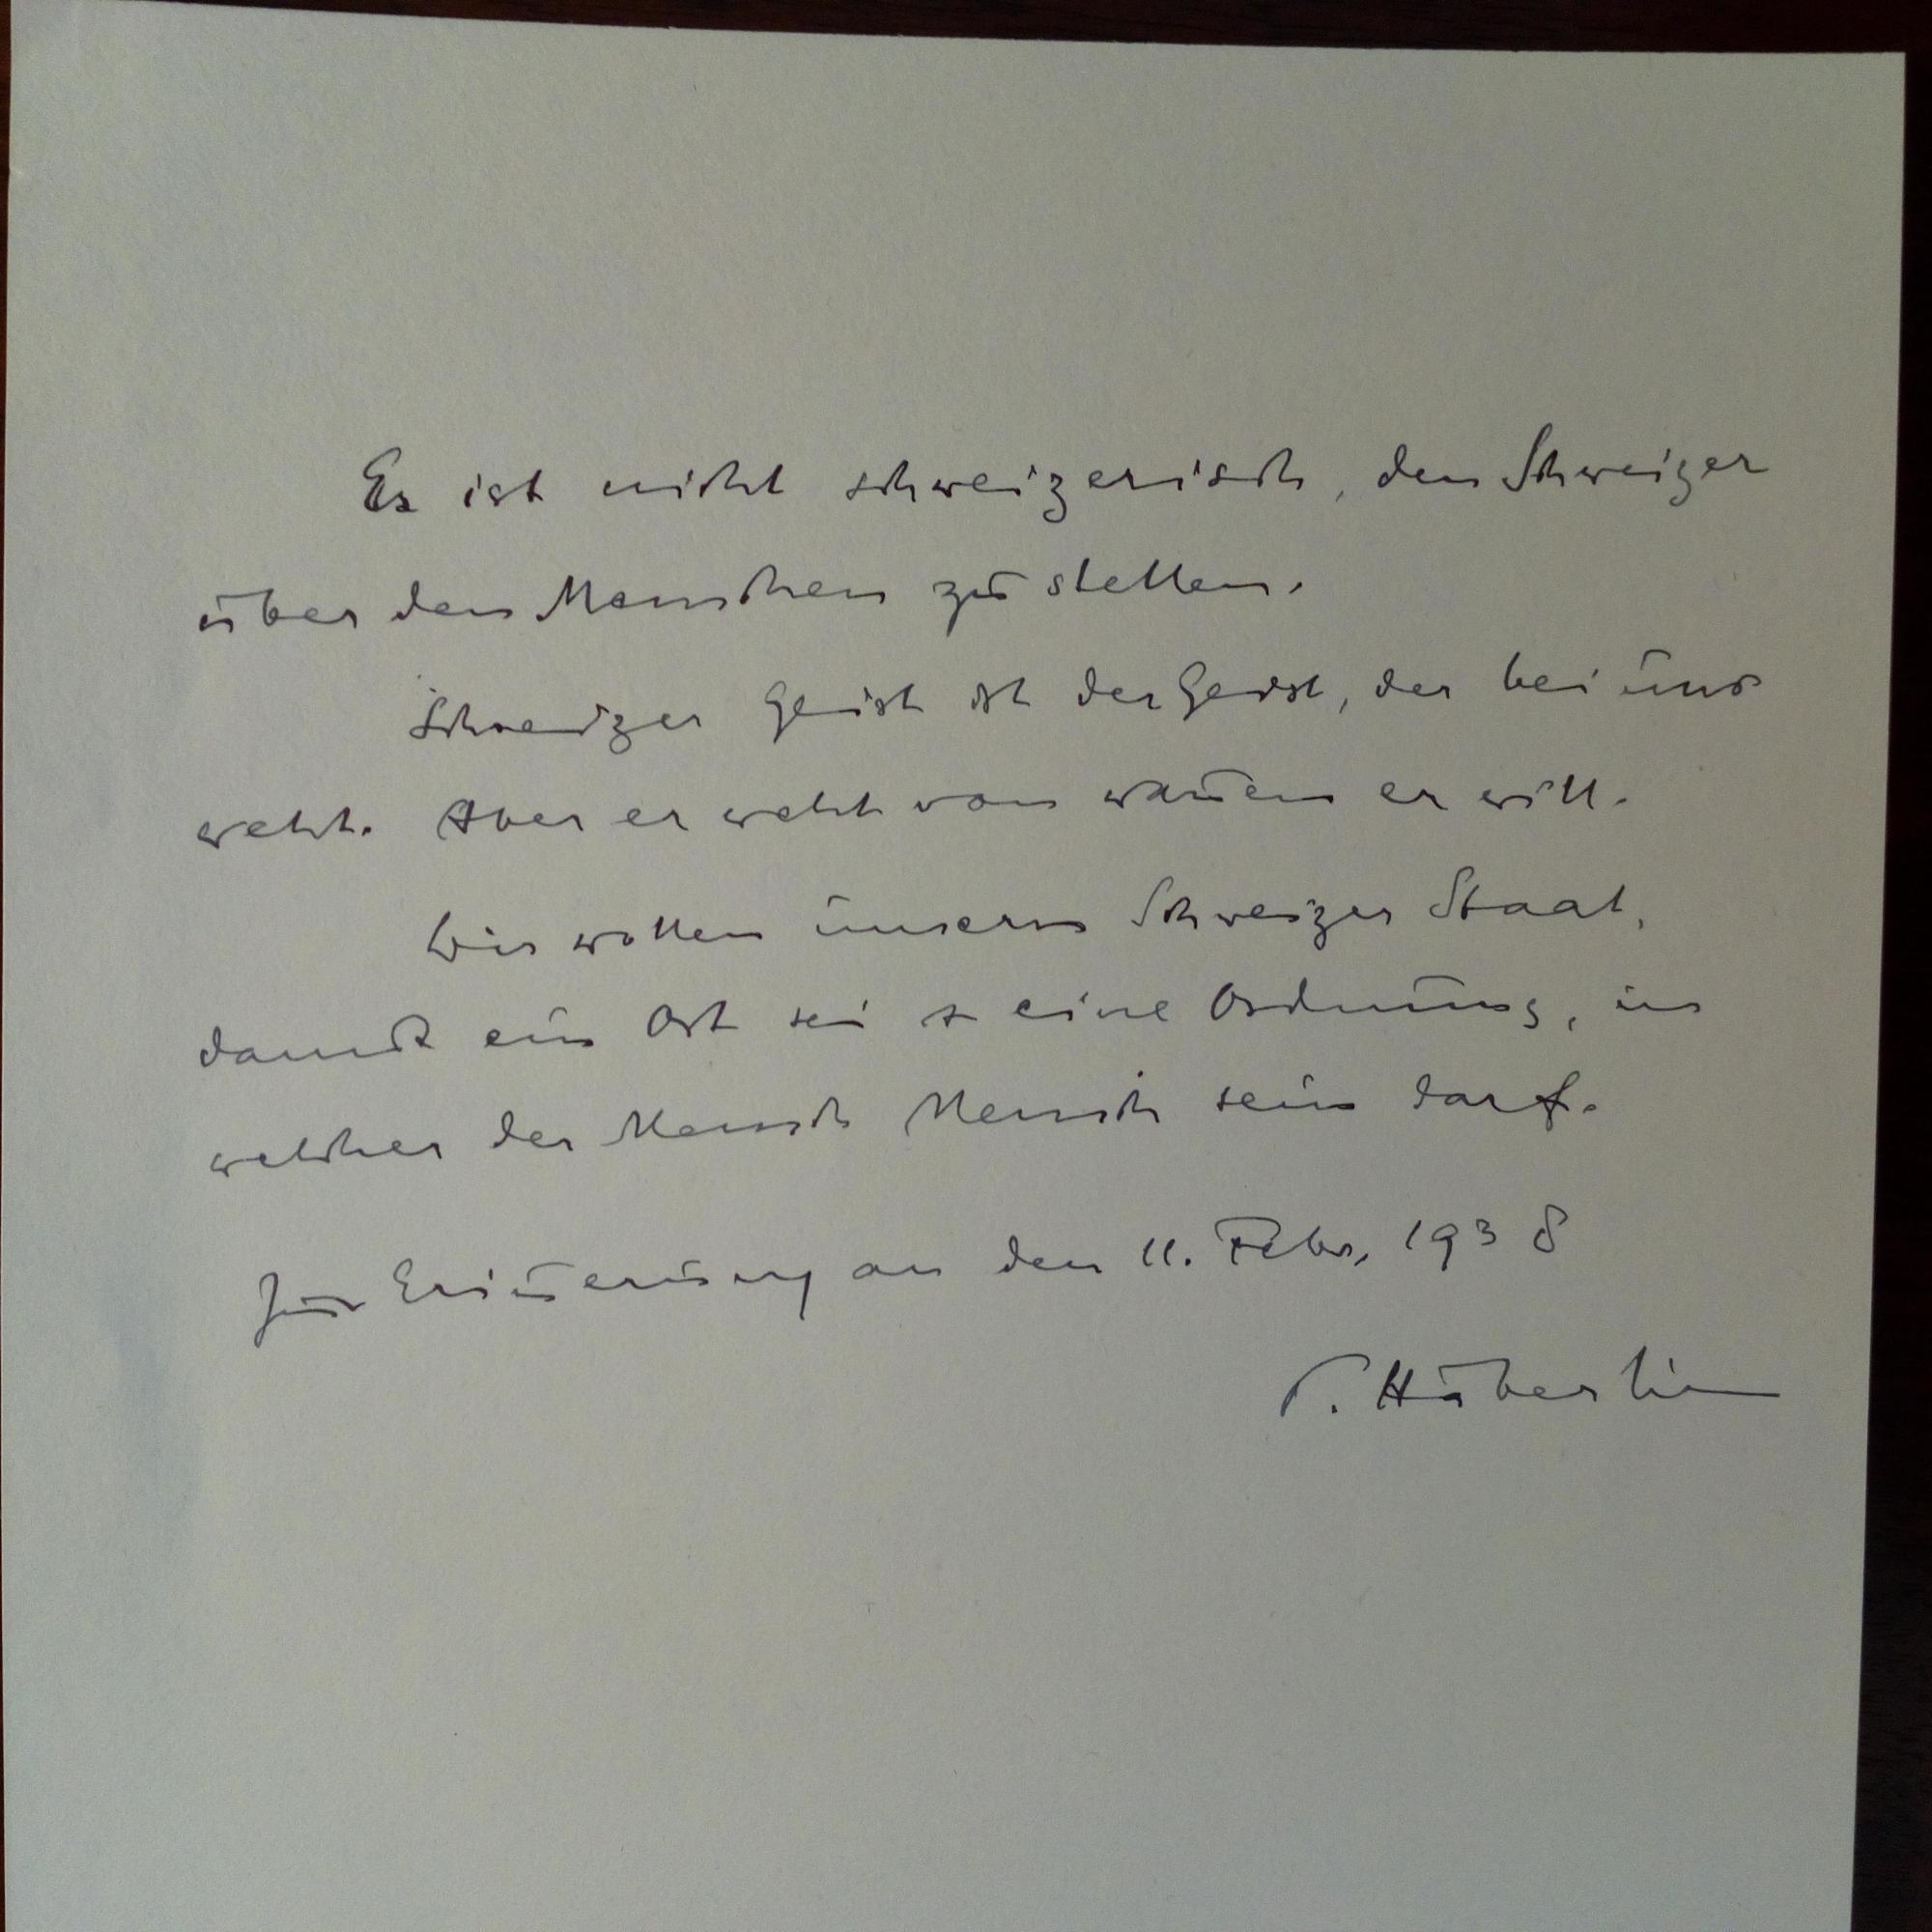 Es ist nicht schweizerisch, den Schweizer
über den Menschen zu stellen.
Schweizer Geist ist der Geist, der bei uns
weht. Aber er weht von wannen er will.
Wir wollen unsern Schweizer Staat,
damit ein Ort sei + eine Ordnung, in
welcher der Mensch Mensch sein darf.
Zur Erinnerung an den 11. Febr. 1938
P. Häberlin